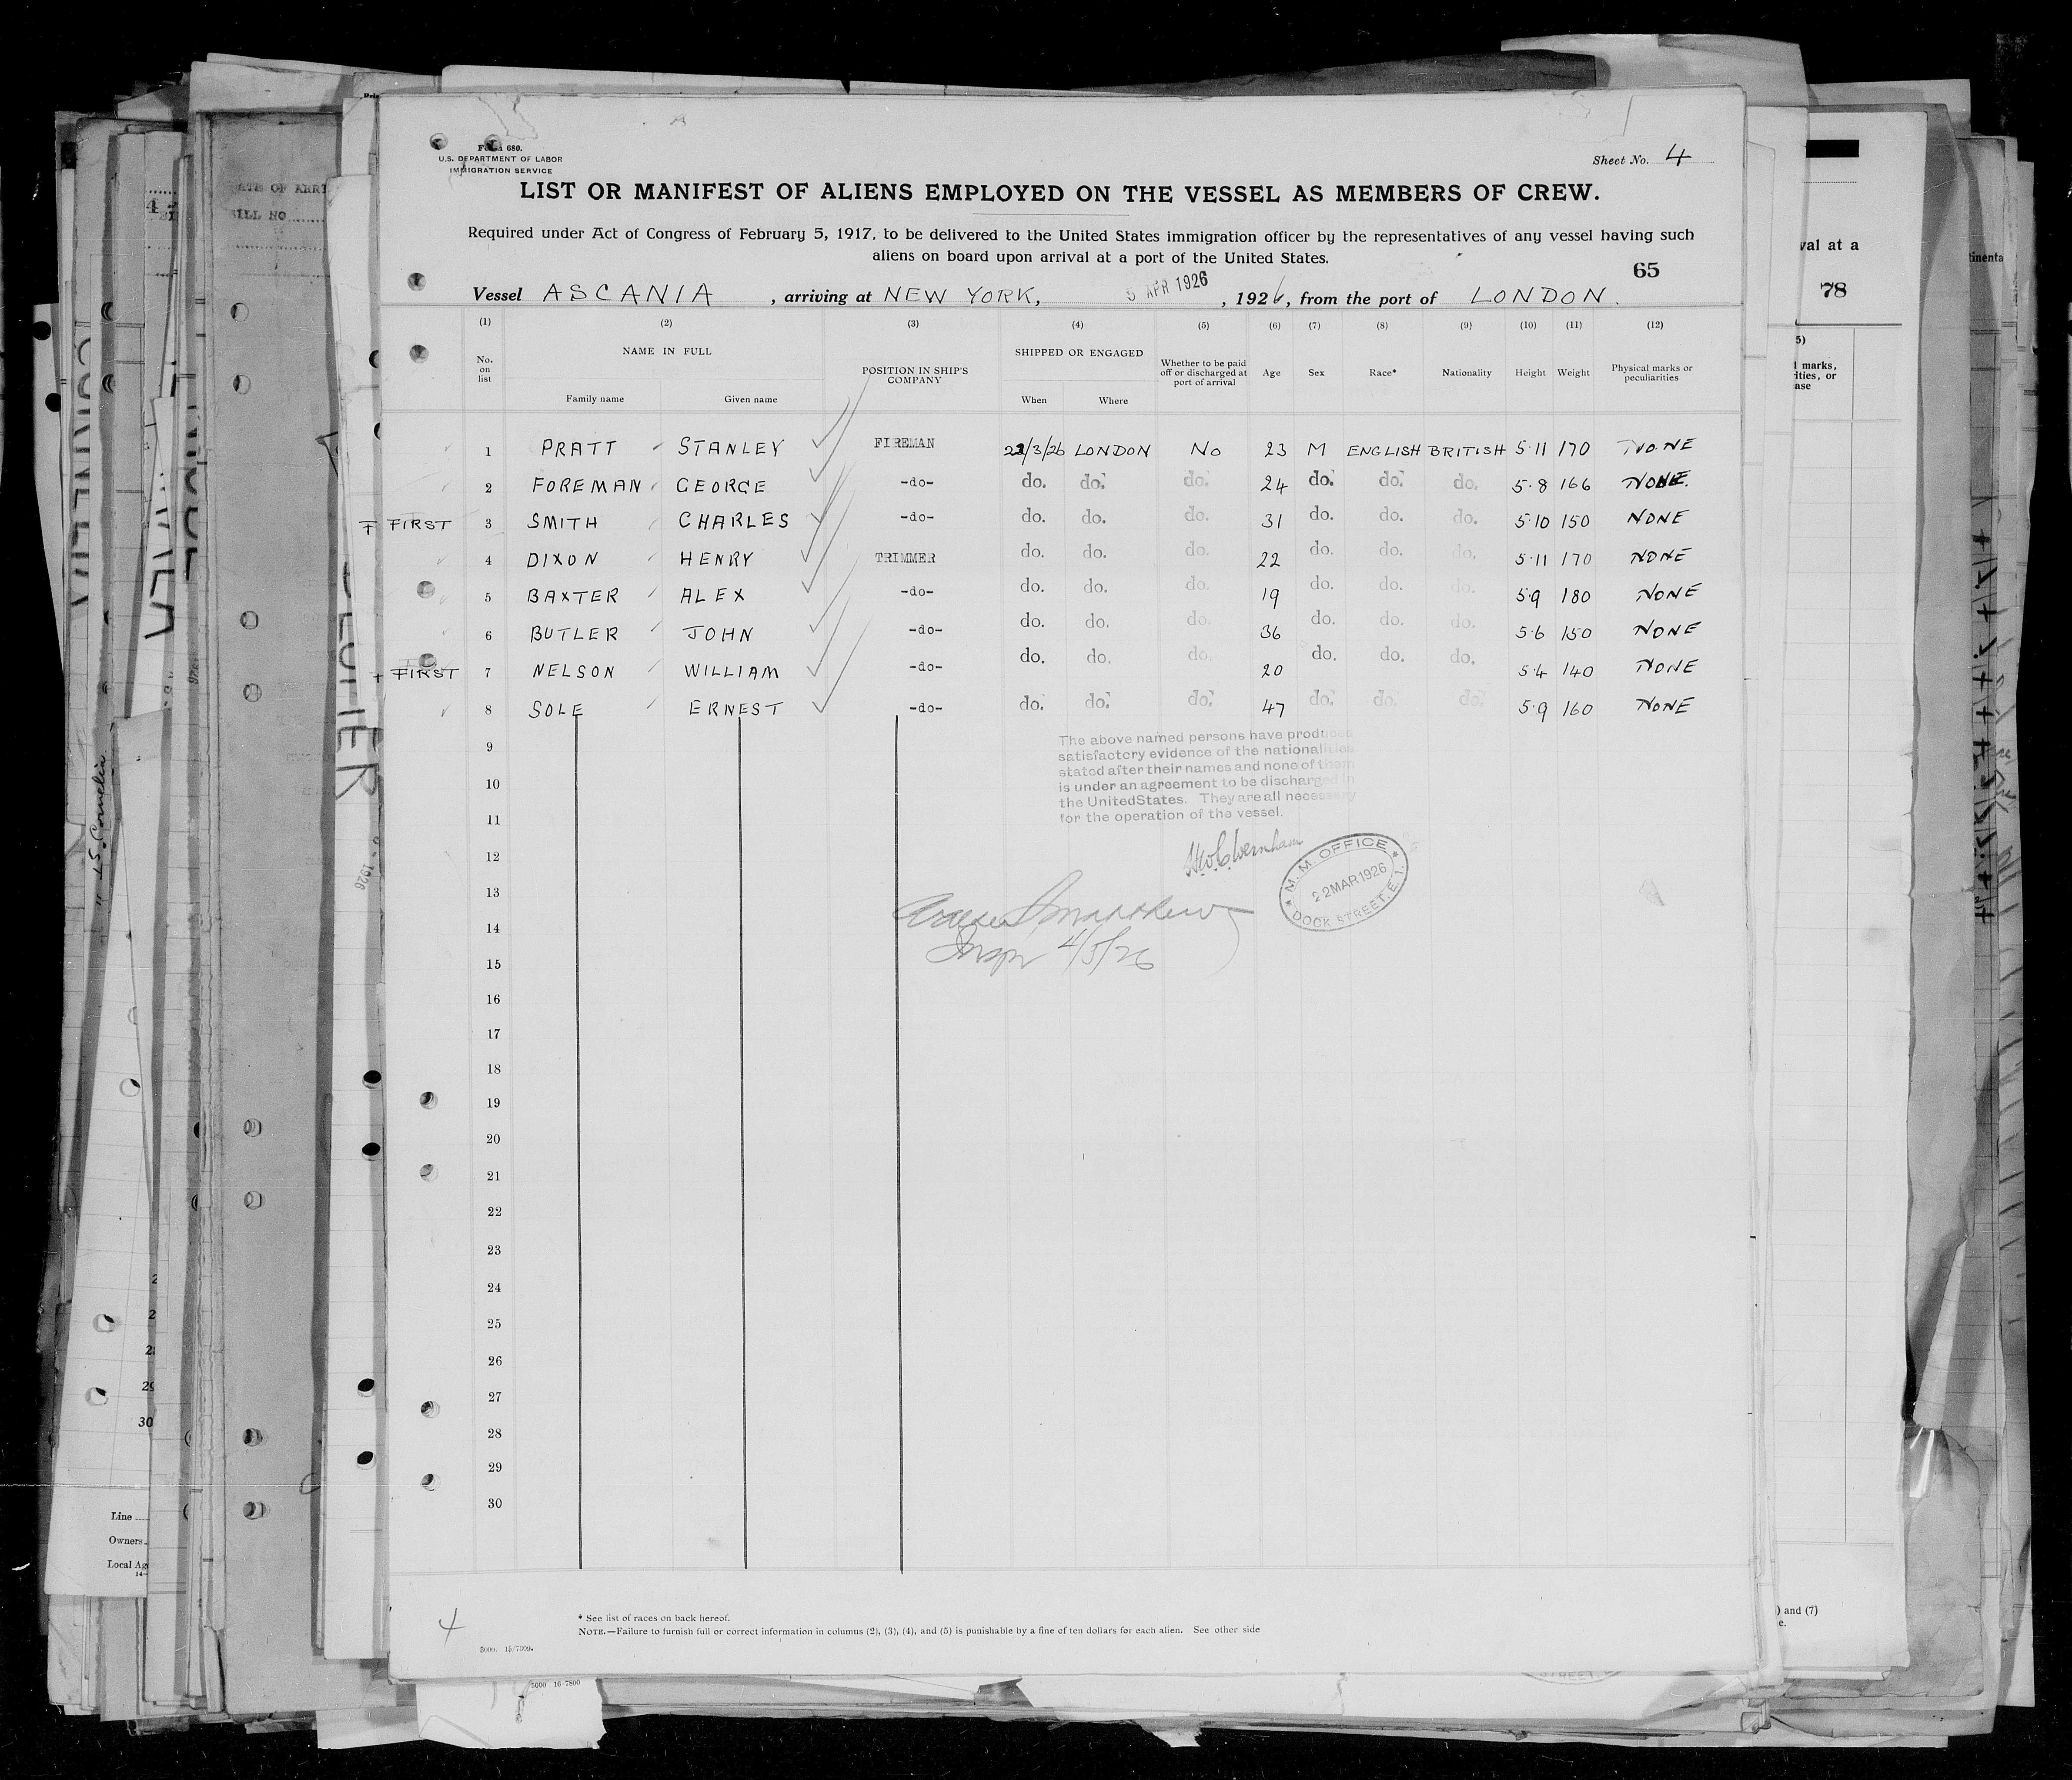 Form 680.
U.S. DEPARTMENT OF LABOR
IMMIGRATION SERVICE
Sheet No. 4
LIST OR MANIFEST OF ALIENS EMPLOYED ON THE VESSEL AS MEMBERS OF CREW.
Required under Act of Congress of February 5, 1917, to be delivered to the United States immigration officer by the representatives of any vessel having such
aliens on board upon arrival at a port of the United States.
65
Vessel ASCANIA, arriving at NEW YORK, 5 APR 1926, 1926, from the port of LONDON.
(1) (2) (3) (4) (5) (6) (7) (8) (9) (10) (11) (12)
No. on list NAME IN FULL POSITION IN SHIP'S COMPANY SHIPPED OR ENGAGED Whether to be paid off or discharged at port of arrival Age Sex Race* Nationality Height Weight Physical marks or peculiarities
Family name Given name When Where
1 PRATT STANLEY FIREMAN 22/3/26 LONDON No 23 M ENGLISH BRITISH 5·11 170 NONE
2 FOREMAN GEORGE -do- do. do. do. 24 do. do. do. 5·8 166 NONE.
FIRST 3 SMITH CHARLES -do- do. do. do. 31 do. do. do. 5·10 150 NONE
4 DIXON HENRY TRIMMER do. do. do. 22 do. do. do. 5·11 170 NONE
5 BAXTER ALEX -do- do. do. do. 19 do. do. do. 5·9 180 NONE
6 BUTLER JOHN -do- do. do. do. 36 do. do. do. 5·6 150 NONE
FIRST 7 NELSON WILLIAM -do- do. do. do. 20 do. do. do. 5·4 140 NONE
8 SOLE ERNEST -do- do. do. do. 47 do. do. do. 5·9 160 NONE
9
10
11
12
13
14
15
16
17
18
19
20
21
22
23
24
25
26
27
28
29
30
The above named persons have produced
satisfactory evidence of the nationalities
stated after their names and none of them
is under an agreement to be discharged in
the United States. They are all necessary
for the operation of the vessel.
M.M. OFFICE
22 MAR 1926
DOCK STREET, E.1.
Inspr 4/5/26
4
* See list of races on back hereof.
NOTE.—Failure to furnish full or correct information in columns (2), (3), (4), and (5) is punishable by a fine of ten dollars for each alien. See other side
5000 16-7800
val at a
78
marks,
ities, or
ase
) and (7)
Line
Owners
Local Ag